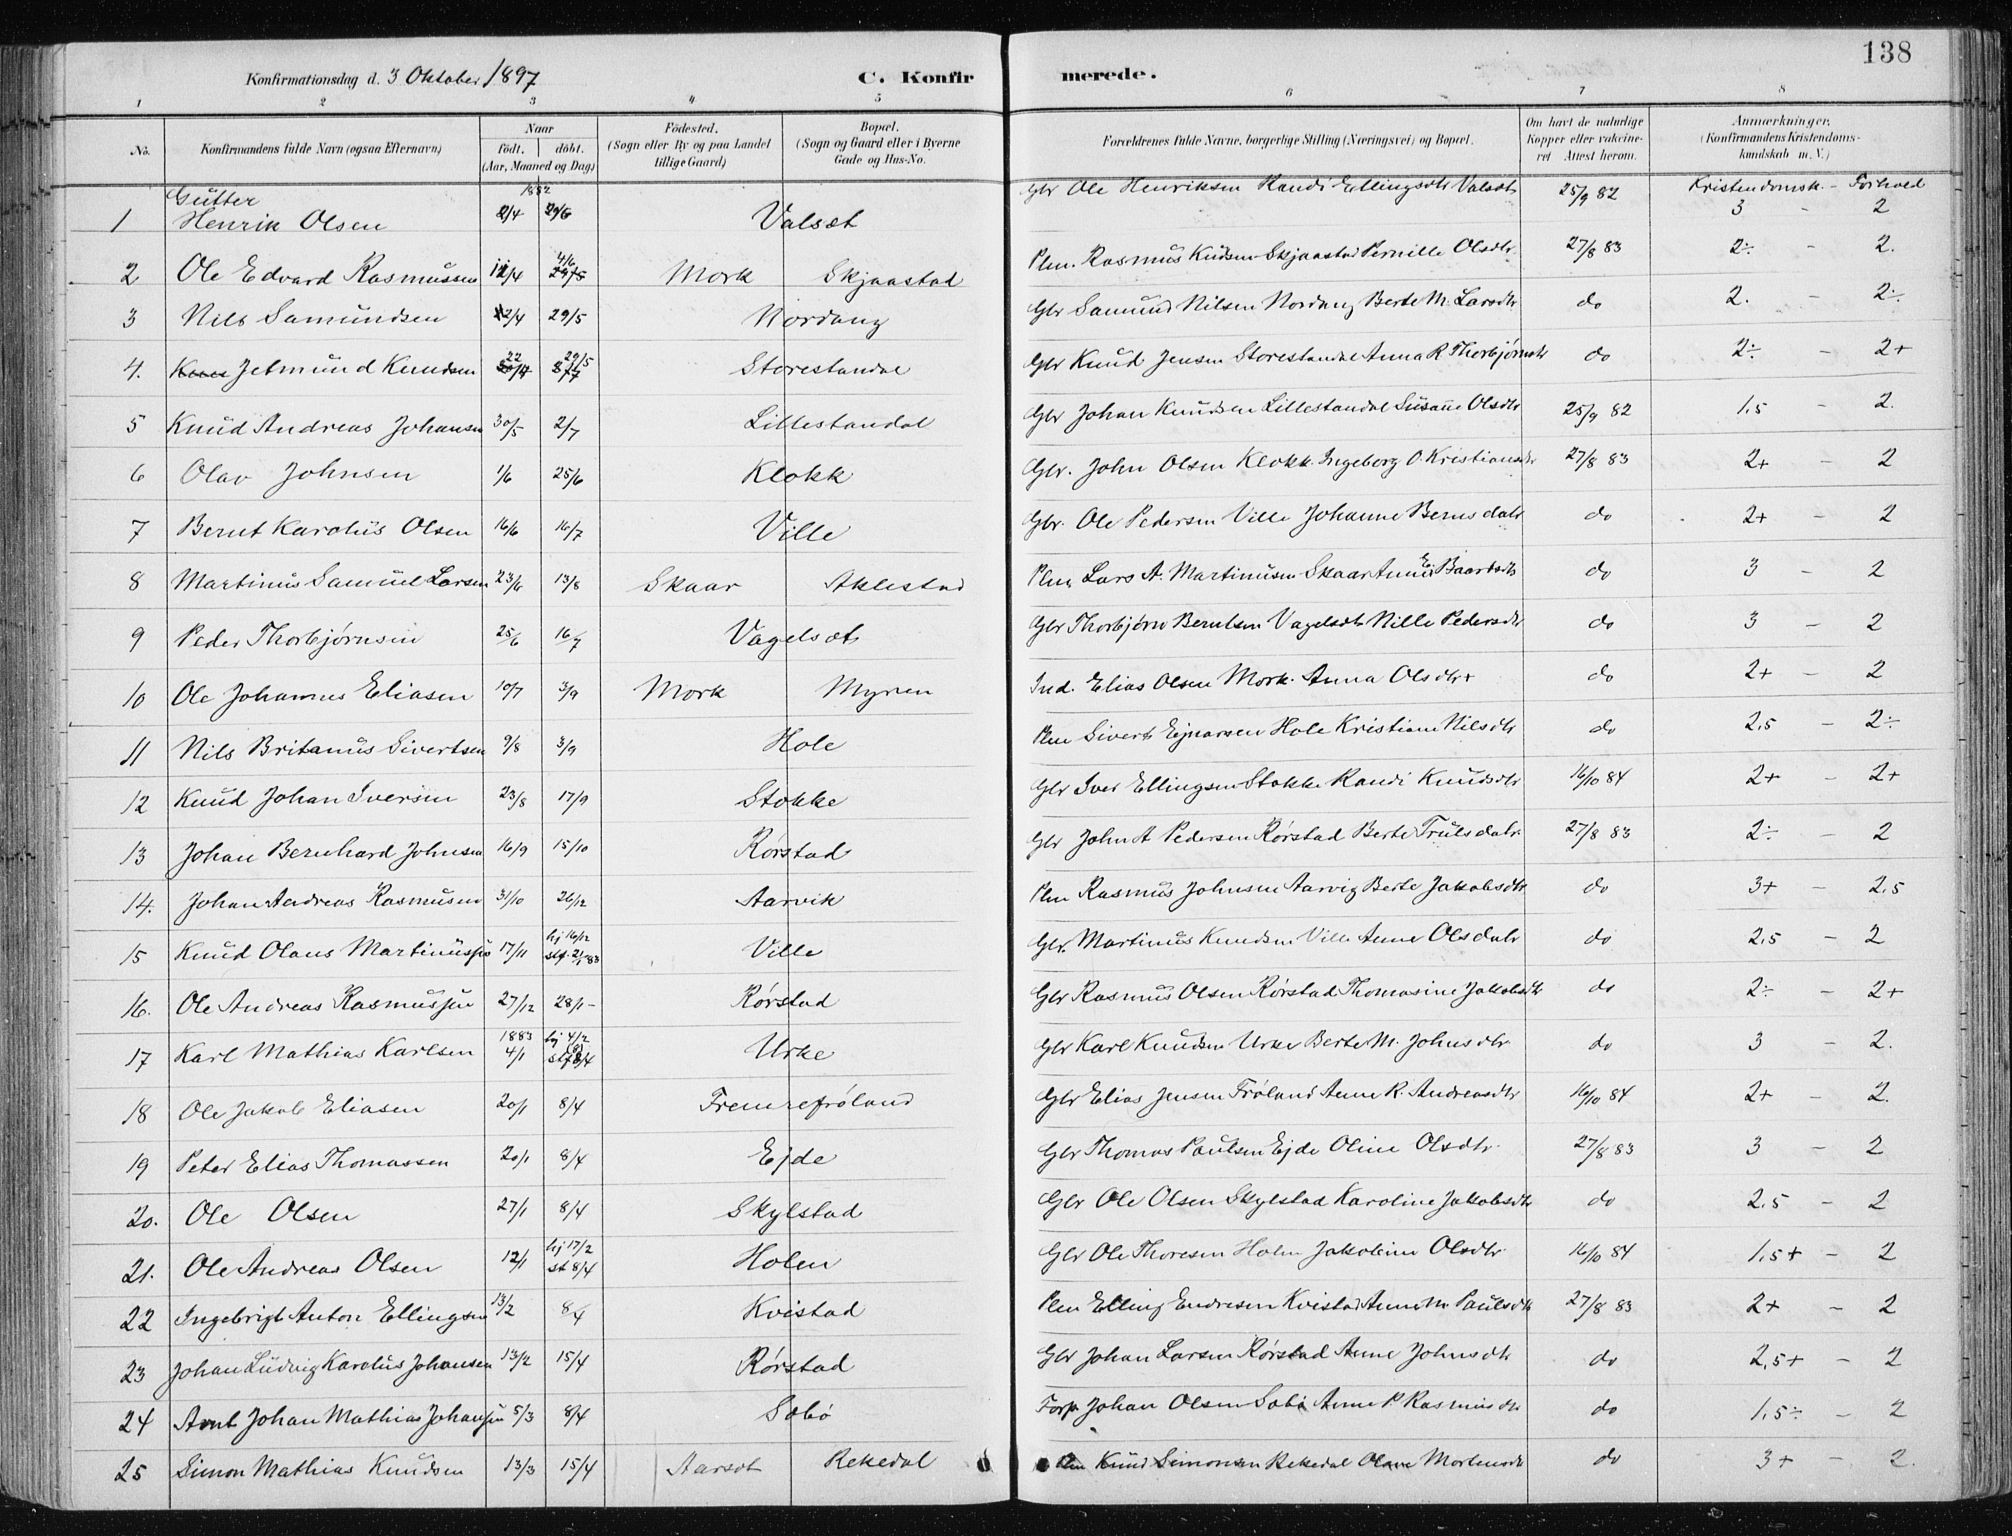 138
Konfirmationsdag d. 3 Oktober 1897 C. Konfirmerede.
1 2 3 4 5 6 7 8
No. Konfirmandens fulde Navn (ogsaa Efternavn) Naar født. døbt. (Aar, Maaned og Dag) Fødested. (Sogn eller By og paa Landet tillige Gaard) Bopæl. (Sogn og Gaard eller i Byerne Gade og Hus-No. Forældrenes fulde Navne, borgerlige Stilling (Næringsvei) og Bopæl. Om havt de naturlige Kopper eller vakcineret Attest herom. Anmærkninger. (Konfirmandens Kristendomskundskab m. V.)
Gutter 1882 Kristendomsk. - Forhold
1 Henrik Olsen 2/4 29/5 Valsæt Gbr Ole Henriksen Randi Ellingsdtr Valsæt 25/9 82 3 - 2
2 Ole Edvard Rasmussen 12/4 4/6 29/5 Mork Skjaastad Plm. Rasmus Knudsen Skjaastad Pernille Olsdtr. 27/8 83 2÷ - 2.
3 Nils Samundsen 12/4 29/5 Nordang Gbr Samund Nilsen Nordang Berte M. Larsdtr do 2. - 2÷
4. Jetmund Knudsen 22/4 29/5 Storestandal Gbr Knud Jensen Storestandal Anna R Thorbjørnsdtr do 2÷ - 2+
5 Knud Andreas Johansen 30/5 2/7 Lillestandal Gbr Johan Knudsen Lillestandal Susanne Olsdtr 25/9 82 1,5 - 2.
6 Olav Johnsen 1/6 25/6 Klokk Gbr. John Olsen Klokk. Ingeborg O. Kristiansdtr 27/8 83 2+ - 2
7 Bernt Karolus Olsen 16/6 16/7 Ville Gbr. Ole Pedersen Ville Johanne Berns datr do 2+ - 2
8 Martinus Samuel Larsen 23/6 13/8 Skaar Aklestad Plm Lars A. Martinusen Skaar Anne E Baardsdtr do 3 - 2
9 Peder Thorbjørnsen 25/6 16/7 Vagelsæt Gbr Thorbjørn Berntsen Vagelsæt Nille Pedersdtr do 3 - 2
10 Ole Johannes Eliasen 10/7 3/9 Mork Myren Ind. Elias Olsen Mork. Anna Olsdtr+ do 2+ - 2
11 Nils Britanus Sivertsen 9/8 3/9 Hole Plm Sivert Ejnarsen Hole Kristiane Nilsdtr do 2,5 - 2÷
12 Knud Johan Iversen 23/8 17/9 Stokke Gbr Iver Ellingsen Stokke Randi Knudsdtr 16/10 84 2+ - 2+
13 Johan Bernhard Johnsen 16/9 15/10 Rørstad Gbr John A Pedersen Rørstad Berte Truls datr. 27/8 83 2÷ - 2
14. Johan Andreas Rasmusen 31/10 26/12 Aarvik Plm Rasmus Johnsen Aarvig Berte Jakobsdtr do 3+ - 2,5
15 Knud Olaus Martinussen 17/11 hj 16/12 stf. 2/1-83 Ville Gbr. Martinus Knudsen Ville Anne Ols datr do 2,5 - 2
16. Ole Andreas Rasmussen 27/12 28/1- Rørstad Gbr Rasmus Olsen Rørstad Thomasine Jakobsdtr do 2÷ - 2+
17 Karl Mathias Karlsen 1883 4/1 hj 4/2 stf 8/4 Urke Gbr Karl Knudsen Urke Berte M. Johnsdtr do 3 - 2.
18 Ole Jakob Eliasen 20/1 8/4 Fremrefrøland Gbr Elias Jensen Frøland Anne R. Andreasdtr 16/10 84 2+ - 2.
19 Peter Elias Thomassen 20/1 8/4 Ejde Gbr Thomas Paulsen Ejde Oline Olsdtr. 27/8 83 3 - 2
20. Ole Olsen 27/1 8/4 Skylstad Gbr Ole Olsen Skylstad Karoline Jakobsdtr do 2,5 - 2
21. Ole Andreas Olsen 12/1 hj 17/2 st 8/4 Holen Gbr Ole Thoresen Holen Jakobine Olsdtr. 16/10 84 1,5+ - 2
22 Ingebrigt Anton Ellingsen 13/2 8/4 Kvistad Plm Elling Endresen Kvistad Anne M. Paulsdtr 27/8 83 2+ - 2
23 Johan Ludvig Karolus Johansen 13/2 15/4 Rørstad Gbr Johan Larsen Rørstad Anne Johnsdtr do 2,5+ - 2
24 Arnt Johan Mathias Johansen 5/3 8/4 Sæbø Forp Johan Olsen Sæbø Anne P Rasmusdtr do 1,5÷ - 2
25 Simon Mathias Knudsen 13/3 15/4 Aarsæt Rekedal Plm Knud Simonsen Rekedal Olave Mortensdtr do 3+ - 2.